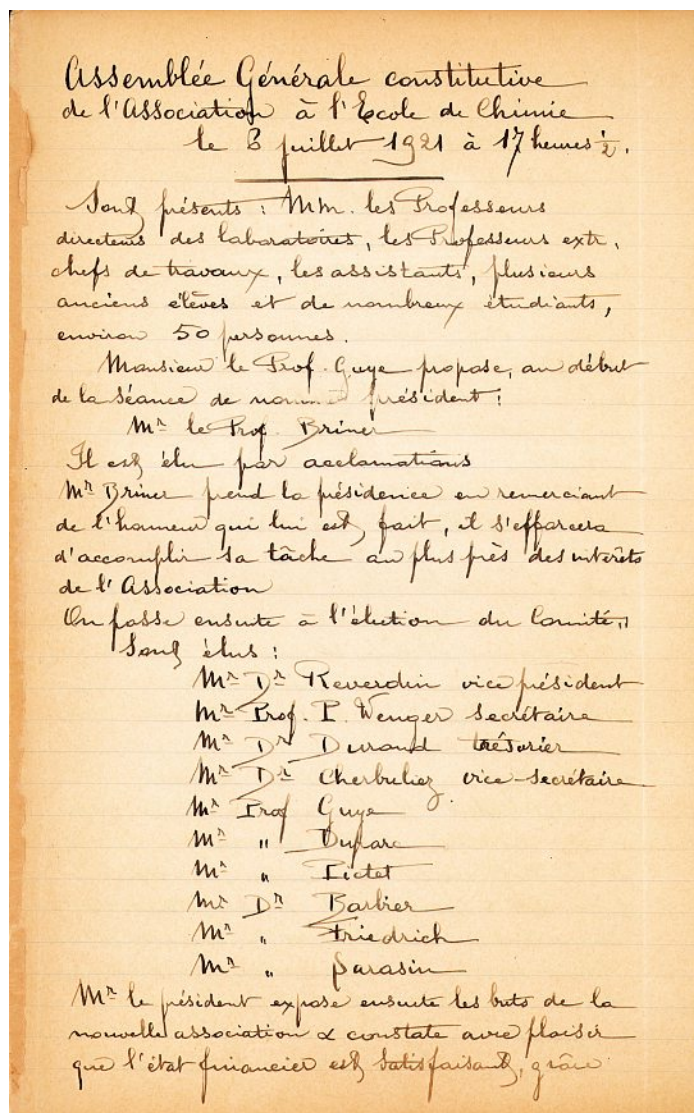 Assemblée Générale constitutive
de l'Association à l'Ecole de Chimie
le 6 juillet 1921 à 17 heures ½.
Sont présents : MM. les Professeurs
directeurs des laboratoires, les Professeurs extr.
chefs de travaux, les assistants, plusieurs
anciens élèves et de nombreux étudiants,
environ 50 personnes.
Monsieur le Prof. Guye propose, au début
de la séance de nommer président :
Mr le Prof. Briner
Il est élu par acclamations
Mr Briner prend la présidence en remerciant
de l'honneur qui lui est fait, il s'efforcera
d'accomplir sa tâche au plus près des intérêts
de l'Association
On passe ensuite à l'élection du Comité,
Sont élus :
Mr Dr Reverdin vice président
Mr Prof. P. Wenger secrétaire
Mr Dr Durand trésorier
Mr Dr Cherbuliez vice-secrétaire
Mr Prof Guye
Mr " Duparc
Mr " Pictet
Mr Dr Barbier
Mr " Friedrich
Mr " Sarasin
Mr le président expose ensuite les buts de la
nouvelle association & constate avec plaisir
que l'état financier est satisfaisant, grâce